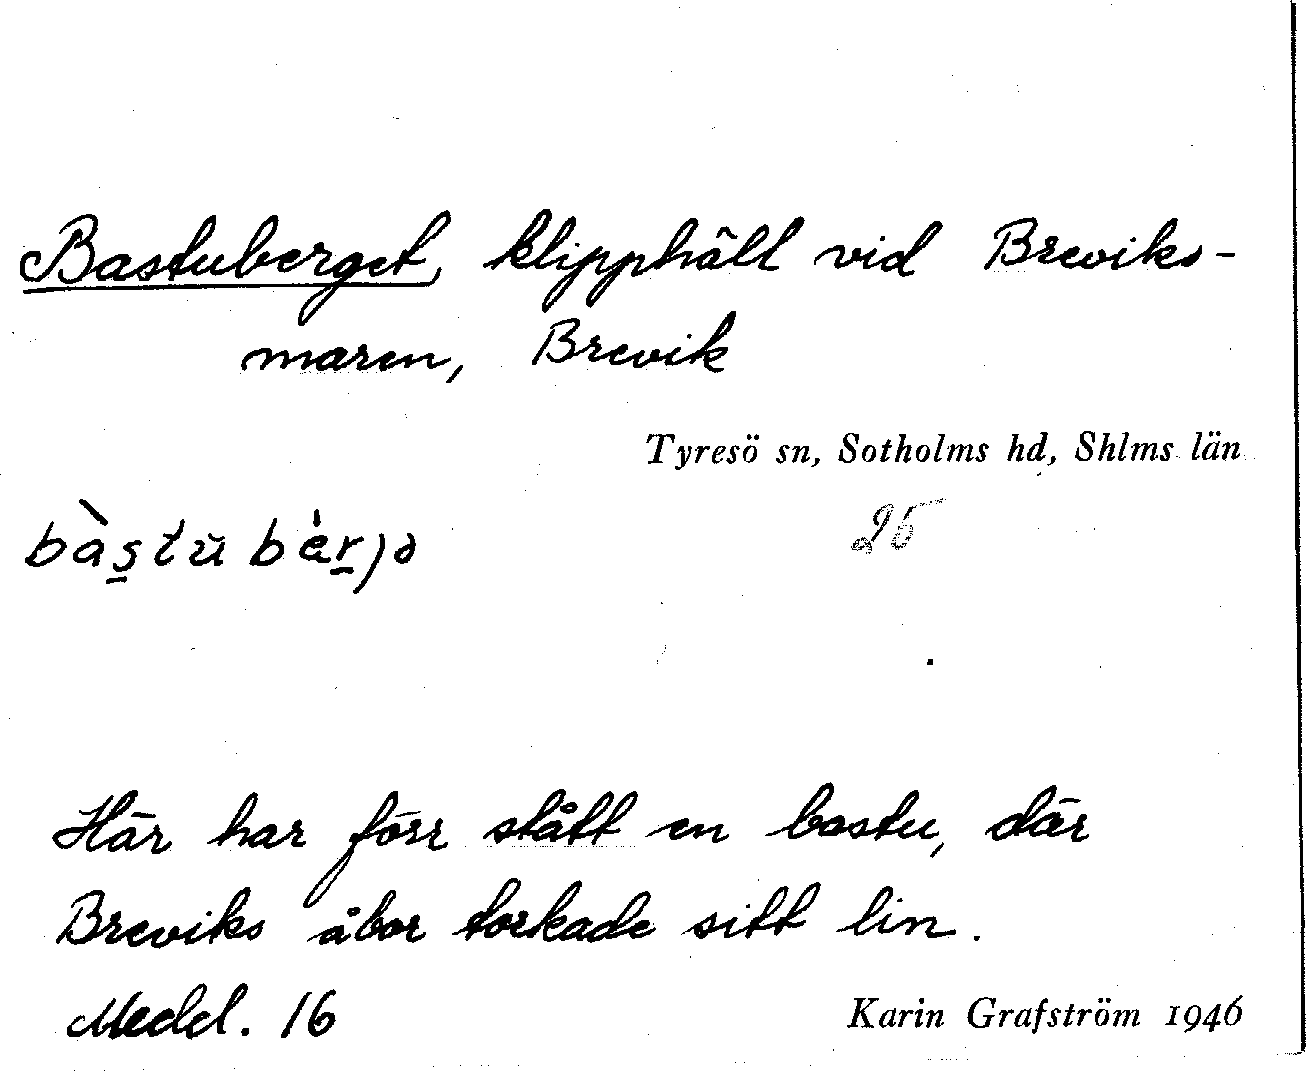 Bastuberget, klipphäll vid Breviks-
maren, Brevik
Tyresö sn, Sotholms hd, Shlms län
bàs̱tŭbèṟjə
25
Här har förr stått en bastu, där
Breviks åbor torkade sitt lin.
Medd. 16
Karin Grafström 1946